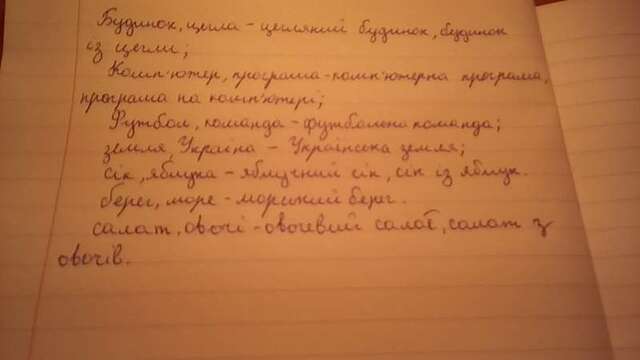 Будинок, цегла - цегляний будинок, будинок
із цегли;
Комп'ютер, програма - комп'ютерна програма,
програма на комп'ютері;
Футбол, команда - футбольна команда;
земля, Україна - Українська земля;
сік, яблука - яблучний сік, сік із яблук.
берег, море - морський берег.
салат, овочі - овочевий салат, салат з
овочів.